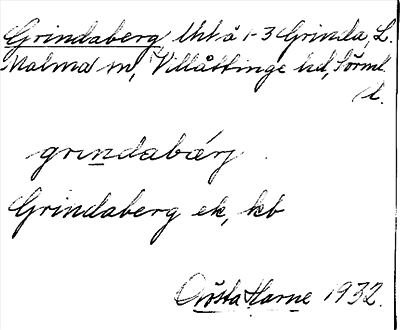 Grindaberg lht å 1-3 Grinda, L.
Malma sn, Villåttinge hd, Sörml.
l.
grindabærj
Grindaberg ek, kb
Gösta Harne 1932.